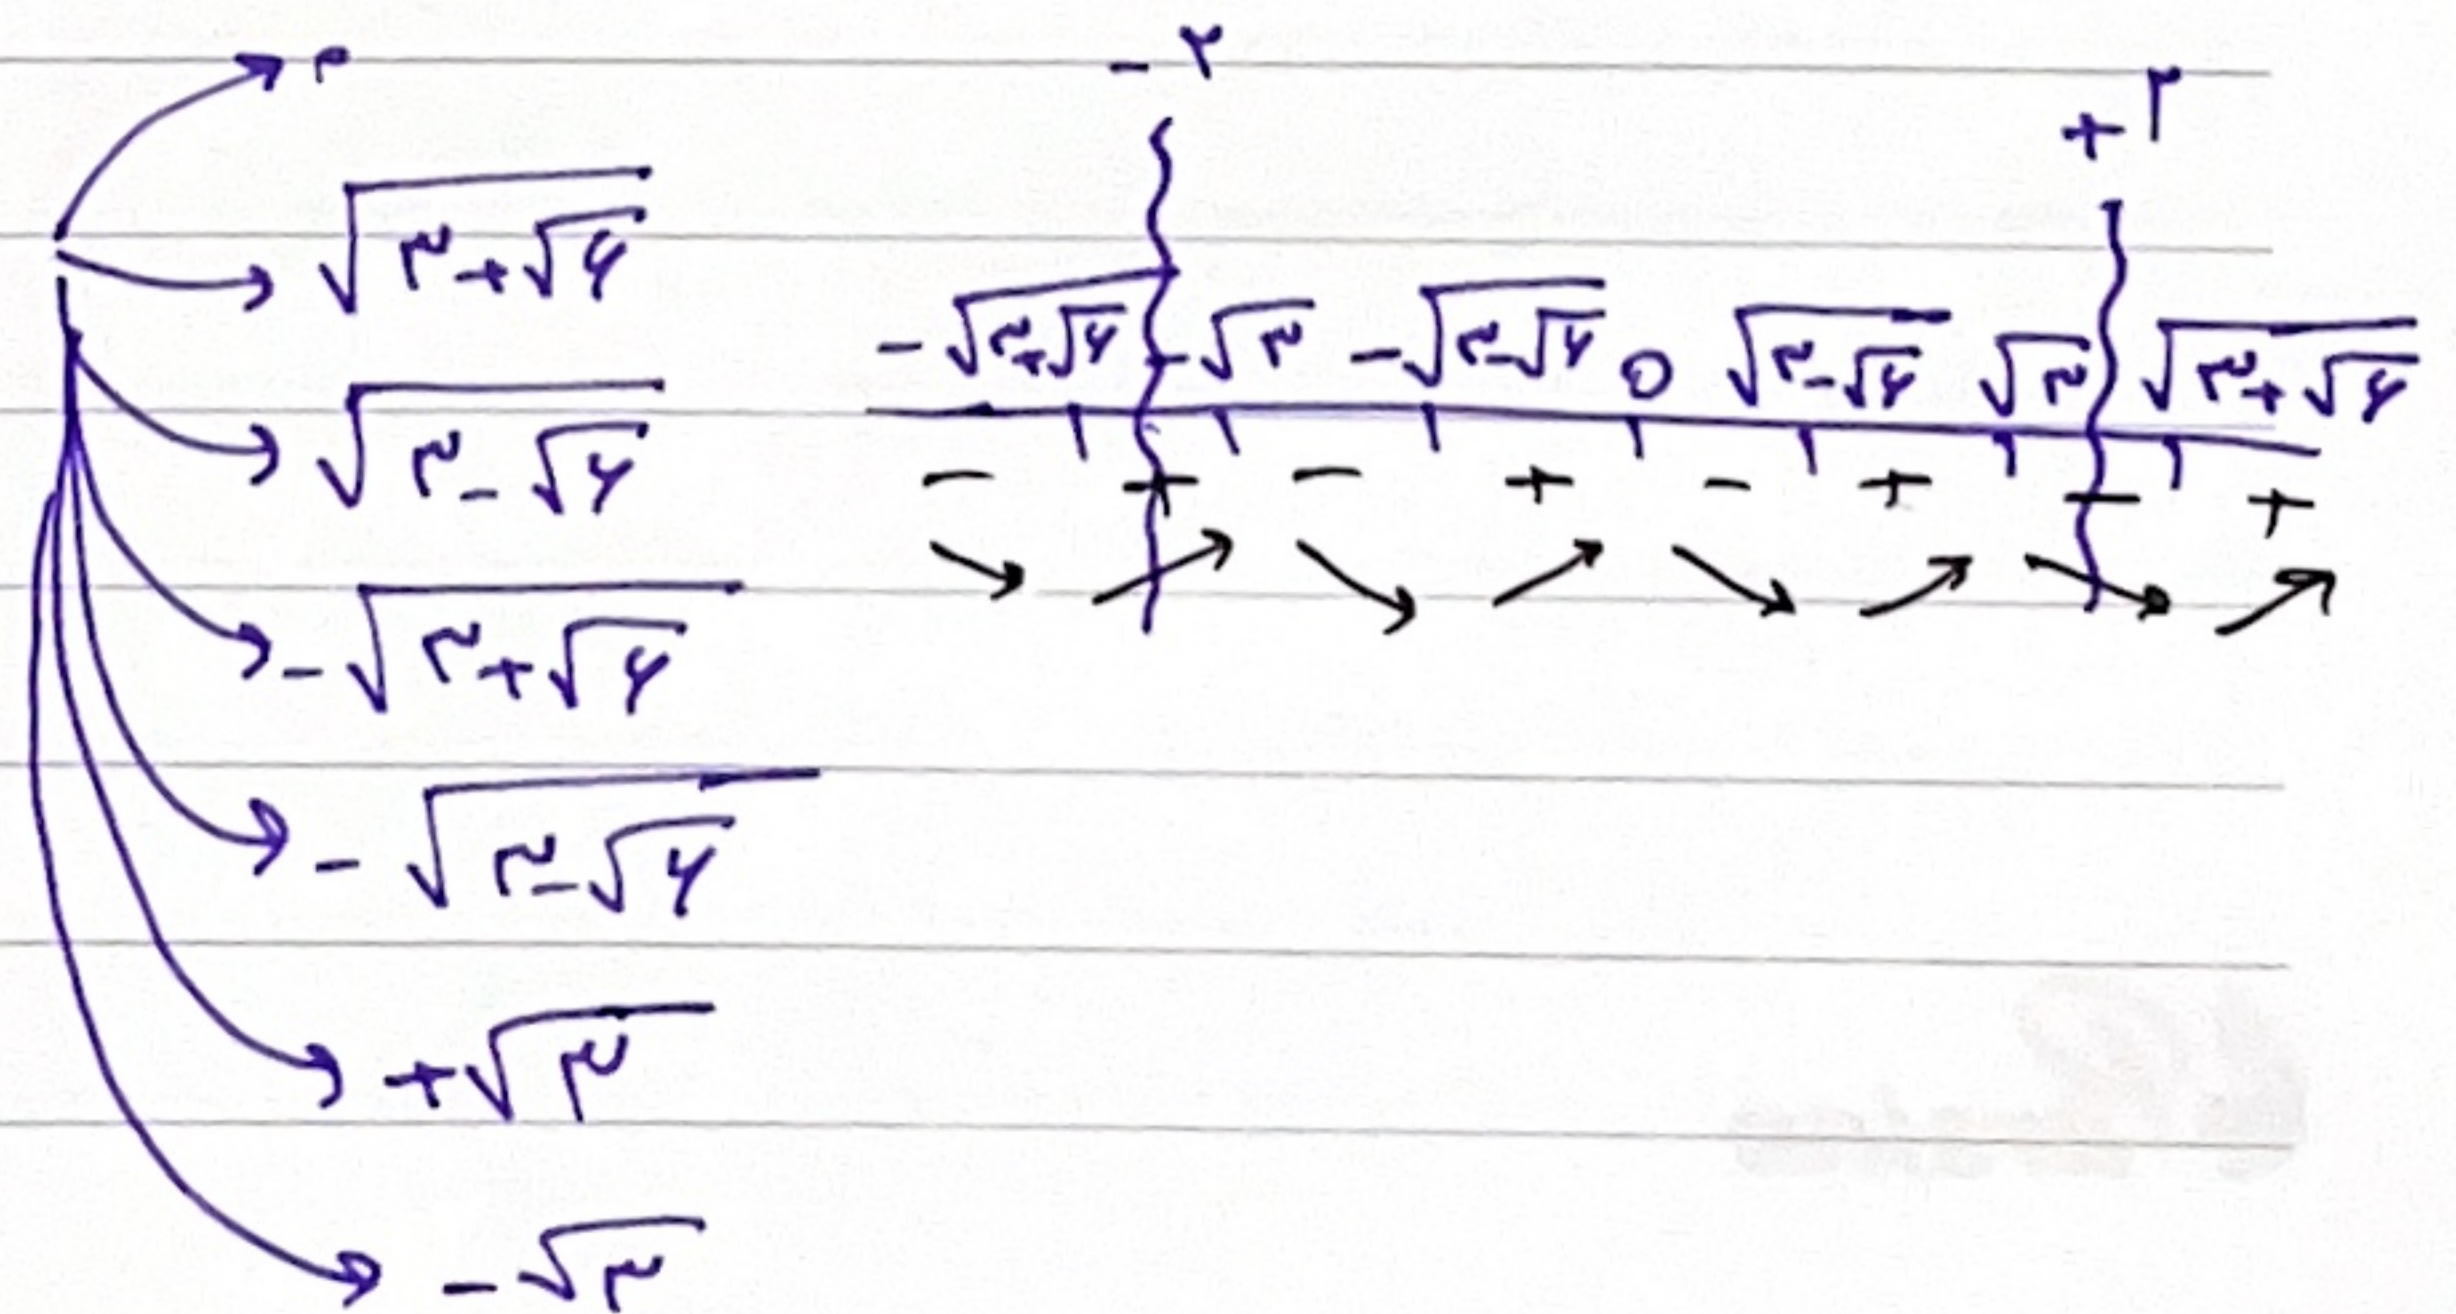 ۰
√(۳+√۶)
√(۳-√۶)
-√(۳+√۶)
-√(۳-√۶)
+√۳
-√۳
-۲ +۲
-√(۳+√۶) -√۳ -√(۳-√۶) 0 √(۳-√۶) √۳ √(۳+√۶)
- + - + - + - +
↘ ↗ ↘ ↗ ↘ ↗ ↘ ↗